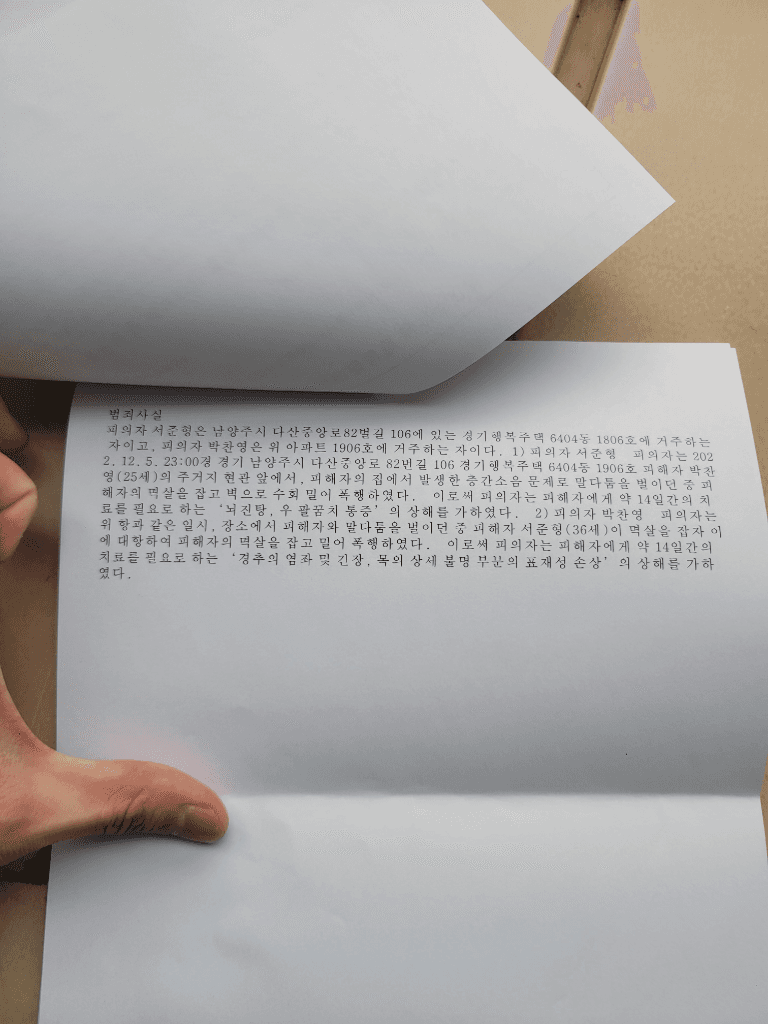 범죄사실
피의자 서준형은 남양주시 다산중앙로82번길 106에 있는 경기행복주택 6404동 1806호에 거주하는
자이고, 피의자 박찬영은 위 아파트 1906호에 거주하는 자이다. 1) 피의자 서준형 피의자는 202
2. 12. 5. 23:00경 경기 남양주시 다산중앙로 82번길 106 경기행복주택 6404동 1906호 피해자 박찬
영(25세)의 주거지 현관 앞에서, 피해자의 집에서 발생한 층간소음 문제로 말다툼을 벌이던 중 피
해자의 멱살을 잡고 벽으로 수회 밀어 폭행하였다. 이로써 피의자는 피해자에게 약 14일간의 치
료를 필요로 하는 ‘뇌진탕, 우 팔꿈치 통증’의 상해를 가하였다. 2) 피의자 박찬영 피의자는
위 항과 같은 일시, 장소에서 피해자와 말다툼을 벌이던 중 피해자 서준형(36세)이 멱살을 잡자 이
에 대항하여 피해자의 멱살을 잡고 밀어 폭행하였다. 이로써 피의자는 피해자에게 약 14일간의
치료를 필요로 하는 ‘경추의 염좌 및 긴장, 목의 상세 불명 부분의 표재성 손상’의 상해를 가하
였다.